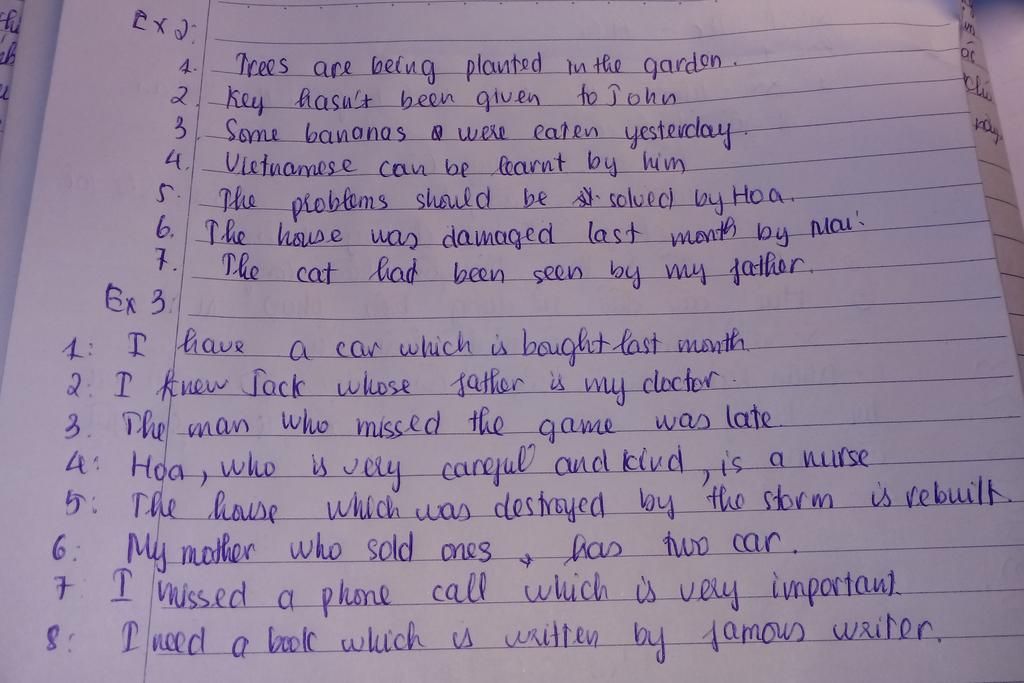 Ex 2:
1. Trees are being planted in the garden.
2. Key hasn't been given to John
3. Some bananas were eaten yesterday.
4. Vietnamese can be learnt by him
5. The problems should be solved by Hoa.
6. The house was damaged last month by Mai.
7. The cat had been seen by my father.
Ex 3:
1: I have a car which is bought last month
2: I knew Jack whose father is my doctor.
3. The man who missed the game was late
4: Hoa, who is very careful and kind, is a nurse
5: The house which was destroyed by the storm is rebuilt.
6: My mother who sold ones, has two car.
7 I missed a phone call which is very important
8: I need a book which is written by famous writer.